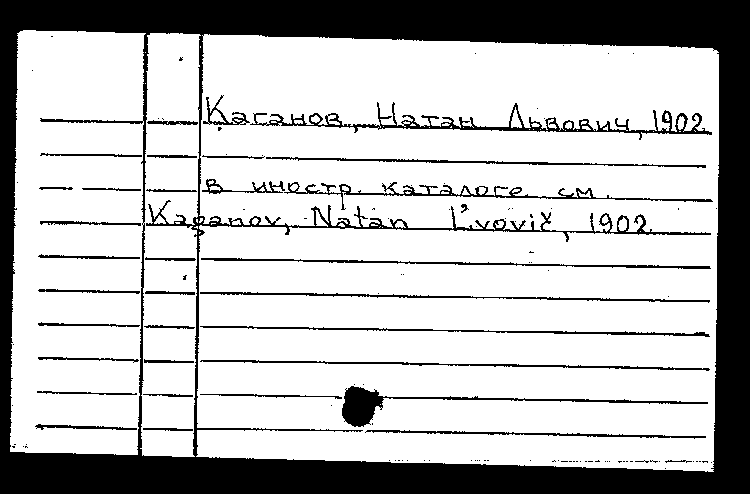 Каганов, Натан Львович, 1902
в иностр. каталоге см.
Kaganov, Natan L'vovič, 1902